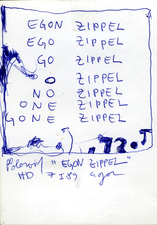 EGON ZIPPEL
EGO ZIPPEL
GO ZIPPEL
O ZIPPEL
NO ZIPPEL
ONE ZIPPEL
GONE ZIPPEL
"EGON ZIPPEL"
HD 7 I 89